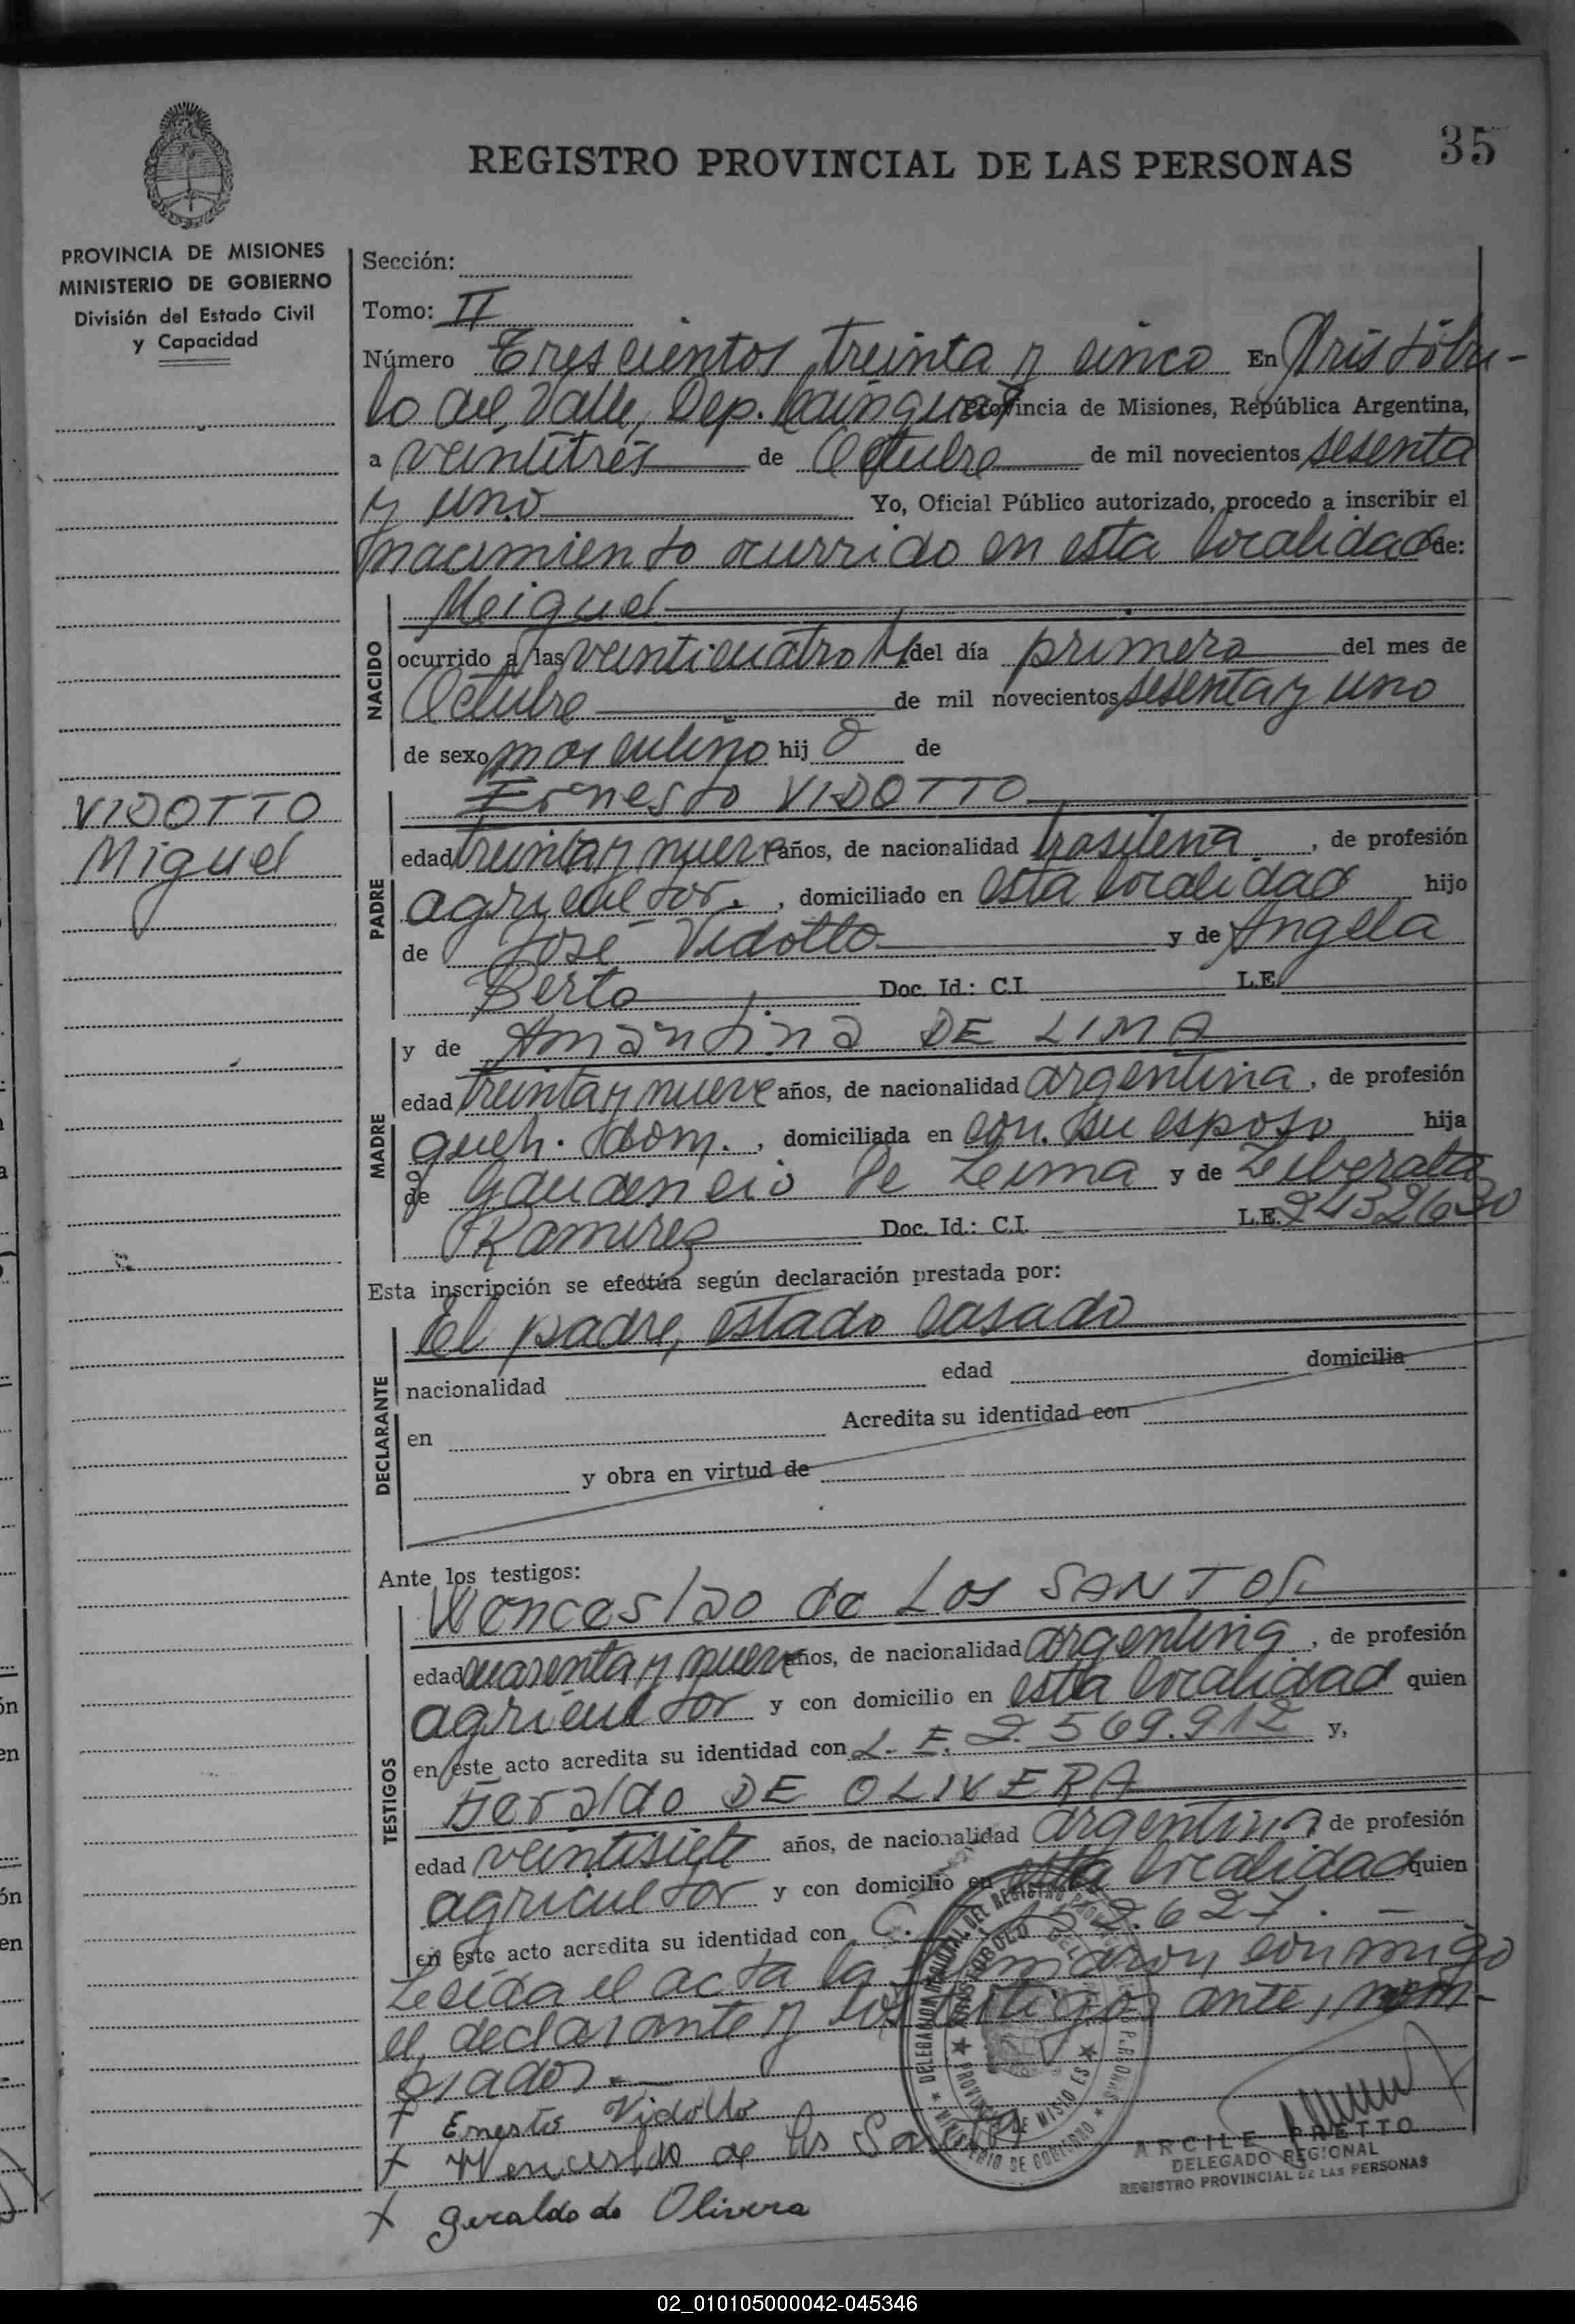 35
REGISTRO PROVINCIAL DE LAS PERSONAS
PROVINCIA DE MISIONES
MINISTERIO DE GOBIERNO
División del Estado Civil
y Capacidad
VIDOTTO
Miguel
Sección:
Tomo: II
Número Trescientos treinta y cinco En Aristóbu-
lo del Valle, Dep. Cainguás Provincia de Misiones, República Argentina,
a veintitrés de Octubre de mil novecientos sesenta
y uno Yo, Oficial Público autorizado, procedo a inscribir el
nacimiento ocurrido en esta localidad de:
NACIDO
Meiguel
ocurrido a las veinticuatro H del día primero del mes de
Octubre de mil novecientos sesenta y uno
de sexo masculino hij o de
PADRE
Ernesto VIDOTTO
edad treinta y nueve años, de nacionalidad brasilena, de profesión
agricultor., domiciliado en esta localidad hijo
de José Vidotto y de Angela
Berto Doc. Id.: C.I. L.E.
MADRE
y de Amandina DE LIMA
edad treinta y nueve años, de nacionalidad argentina, de profesión
queh. dom., domiciliada en con su esposo hija
de Gaudencio de Leima y de Liberata
Ramirez Doc. Id.: C.I. L.E. 2432630
Esta inscripción se efectúa según declaración prestada por:
DECLARANTE
El padre, estado casado
nacionalidad edad domicilia
en Acredita su identidad con
y obra en virtud de
Ante los testigos:
TESTIGOS
Wenceslao de Los SANTOS
edad cuarenta y nueve años, de nacionalidad argentina, de profesión
agricultor y con domicilio en esta localidad quien
en este acto acredita su identidad con L. E. 2.569.912 y,
Heraldo DE OLIVERA
edad veintisiete años, de nacionalidad argentina, de profesión
agricultor y con domicilio en esta localidad quien
en este acto acredita su identidad con C. 2.627.-
Leida el acta la firmaron conmigo
el declarante y los testigos ante, nom-
brados.
+ Ernesto Vidotto
+ Wenceslao de los Santos
+ Geraldo de Olivera
DELEGACION REGIONAL DEL REGISTRO PROVINCIAL DE LAS PERSONAS
ARISTOBULO DEL VALLE
PROVINCIA DE MISIONES
MINISTERIO DE GOBIERNO
ARCILE PRETTO
DELEGADO REGIONAL
REGISTRO PROVINCIAL DE LAS PERSONAS
02_010105000042-045346